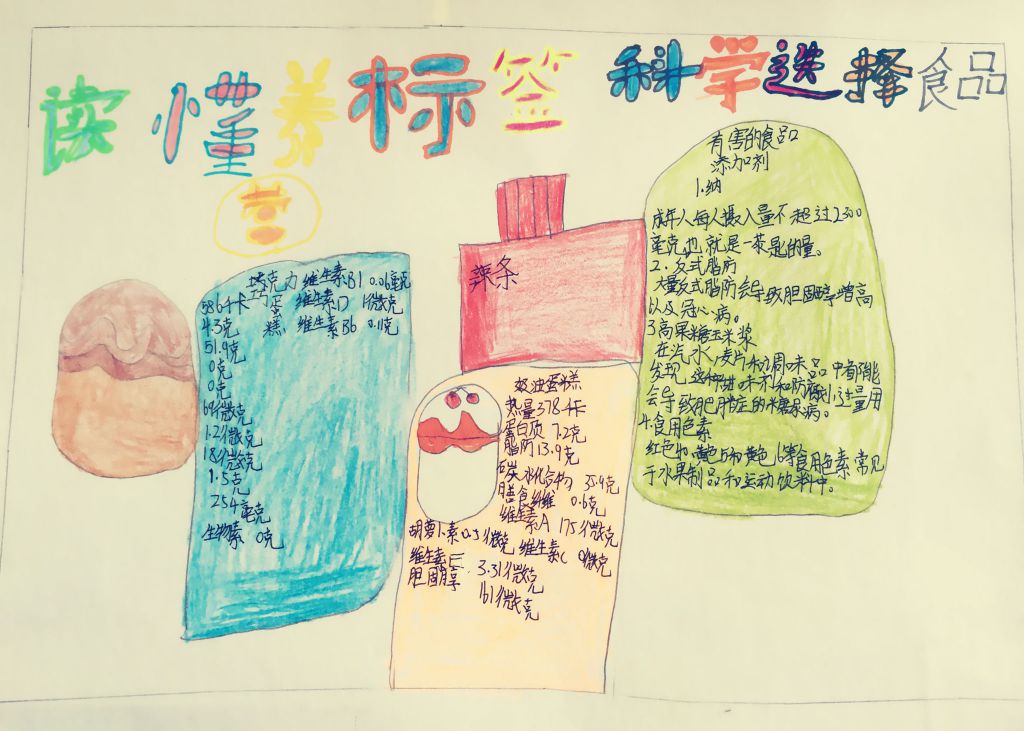 读懂养标签 科学选择食品
营
巧克力 维生素B1 0.06毫克
586千卡 蛋 维生素D 1微克
4.3克 糕 维生素B6 0.1克
51.9克
0克
0克
69微克
1.2微克
18微克
1.5克
254毫克
生物素 0克
辣条
奶油蛋糕
热量378千卡
蛋白质 7.2克
脂肪13.9克
碳水化合物 35.9克
膳食纤维 0.6克
维生素A 175微克
胡萝卜素0.5微克 维生素C 0微克
维生素E 3.31微克
胆固醇
161微克
有害的食品
添加剂
1.纳
成年人每人摄入量不超过2300
毫克也就是一茶匙的量。
2.反式脂肪
大量反式脂肪会导致胆固醇增高
以及冠心病。
3高果糖玉米浆
在汽水,麦片和调味品中都能
发现,这种甜味不和防腐剂过量用
会导致肥胖症的糖尿病。
4.食用色素
红色40.黄色5和黄色6等食用色素常见
于水果制品和运动饮料中。